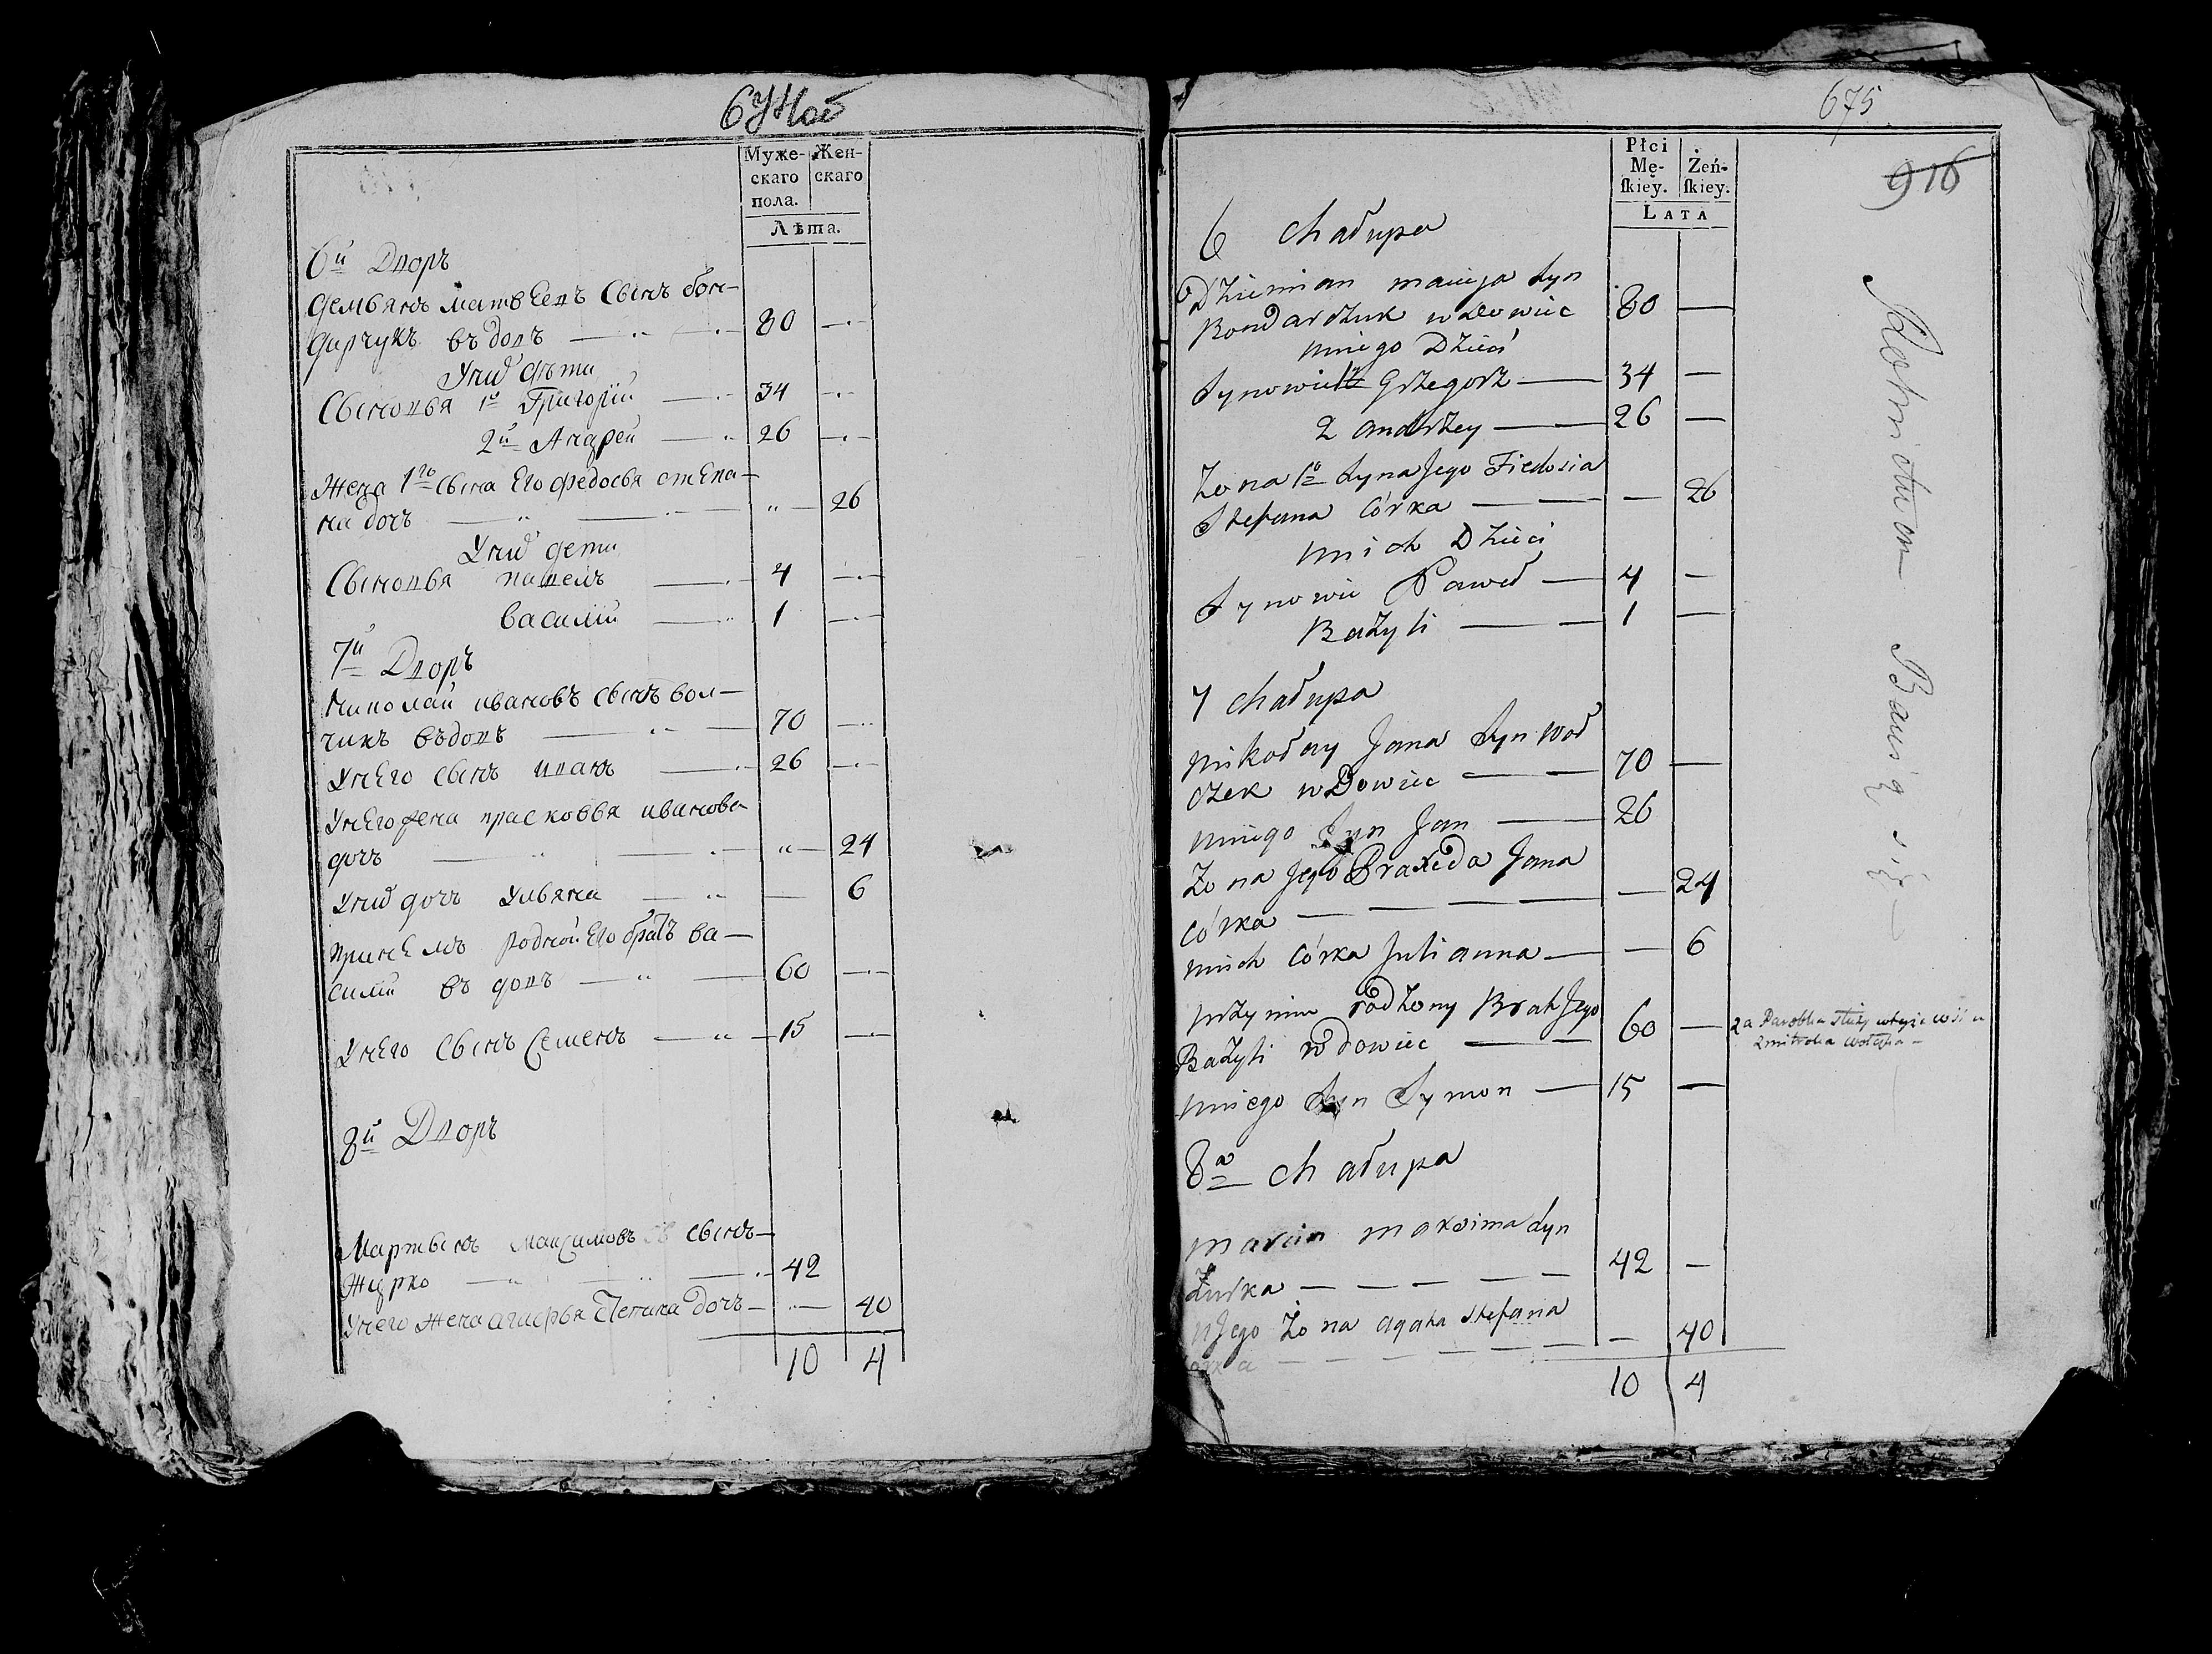 Муже-
скаго
пола.
Жен-
скаго
Лѣта.
6й Дворъ
Демьянъ Матвеевъ Сынъ бон-
дарчукъ въдовъ — 80 —
Унив дѣти
Сыновья 1й Григорій — 34 —
2й Андрей — 26 —
Жена 1го Сына Его Федосья степа-
на дочъ — — 26
Унив дети
Сыновья Павелъ — 4 —
Василій — 1 —
7й Дворъ
Николай ивановъ Сынъ вол-
чикъ въдовъ — 70 —
Унего Сынъ иванъ — 26 —
Унего жена прасковья иванова
дочъ — — 24
Унив дочъ Ульяна — — 6
принемъ родной Его братъ ва-
силій въдовъ — 60 —
Унего Сынъ Семенъ — 15 —
8й Дворъ
Мартынъ Максимовъ Сынъ
Журко — 42
Унего жена агафья Степана дочъ — — 40
10 4
675
916
Płci
Mę-
ſkiey.
Żeń-
ſkiey.
LATA
6 Chałupa
Dziemian Macieja Syn
Bondarczuk wdowiec 80 —
Uniego Dzieci
Synowie 1 Grzegorz — 34 —
2 Andrzey — 26 —
Żona 1o Syna Jego Fiedosia
Stefana Córka — — 26
Unich Dzieci
Synowie Paweł — 4 —
Bazyli — 1 —
7 Chałupa
Mikołay Jana Syn Woł
czek wDowiec — 70 —
Uniego Syn Jan — 26
Żona Jego Praxeda Jana
Córka — — 24
Unich Córka Julianna — — 6
przynim rodzony Brat Jego
Bazyli wdowiec — 60 —
Uniego Syn Symon — 15 —
8a Chałupa
Marcin Maxima Syn
Żurka — 42 —
uJego Żona Agata Stefana
— — 40
10 4
Bawią się —
2a Parobka